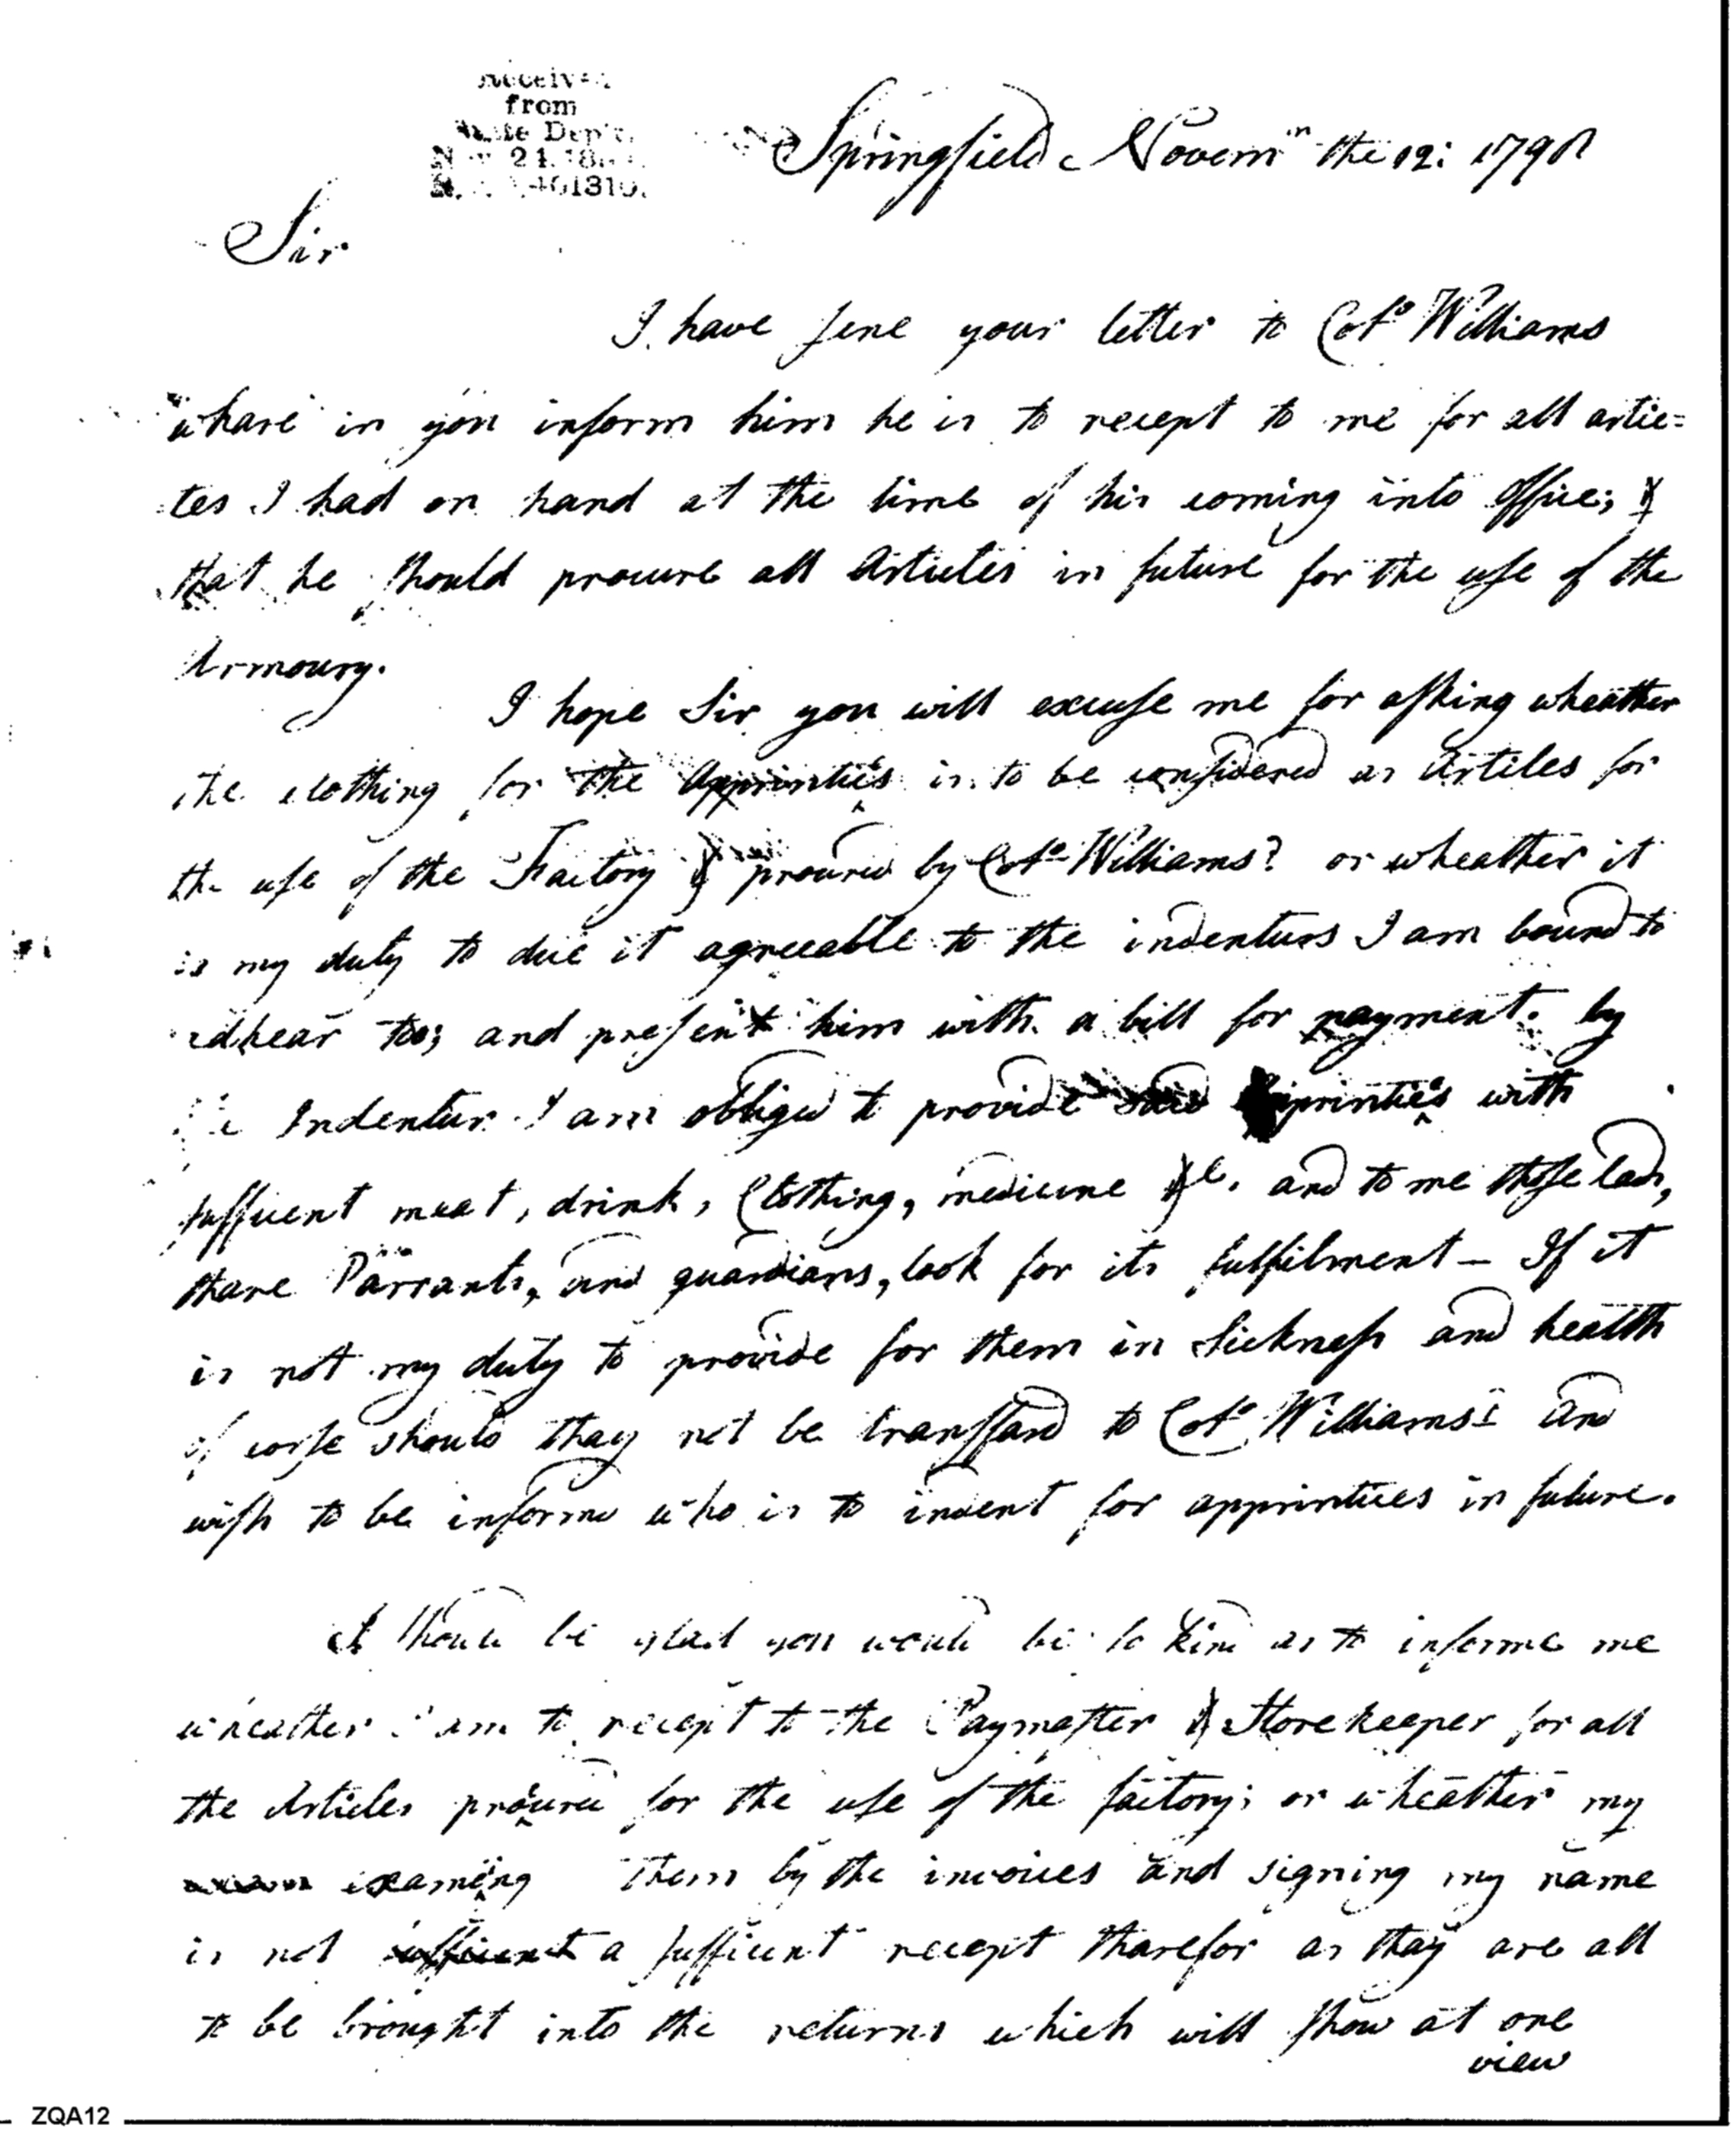 Received
from
State Dep't.
Springfield Novem the 12: 179
Sir
I have sene your letter to Col.o Williams
whare in you inform him he is to recept to me for all artic=
les I had on hand at the time of his coming into office; &
that he should procure all Articles in future for the use of the
Armoury.
I hope Sir you will excuse me for asking wheather
the clothing for the Apprinties is to be considered as Artiles for
the use of the Factory & procured by Col.o Williams? or wheather it
is my duty to due it agreeable to the indenturs I am bound to
adhear too; and present him with a bill for payment. by
Indentur I am obliged to provide said Apprinties with
suffient meat, drink, Clothing, medicine &c. and to me those lads,
thare Parrants, and guardians, look for its fulfilment – If it
is not my duty to provide for them in Sickness and health
of corse should thay not be transfard to Col.o Williams: and
wish to be informd who is to indent for apprintices in future.
I should be glad you would be so kind as to informe me
wheather I am to recept to the Paymaster & Storekeeper for all
the Articles procured for the use of the factory; or wheather my
examening them by the invoices and signing my name
is not sufficient a sufficient recept tharefor as thay are all
to be brought into the returns which will show at one
view
ZQA12